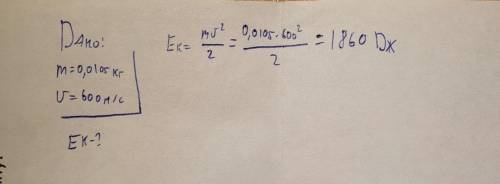 Дано:
m=0,0105кг
υ=600м/с
Eк-?
Eк= mυ²/2 = 0,0105·600²/2 = 1860 Dж